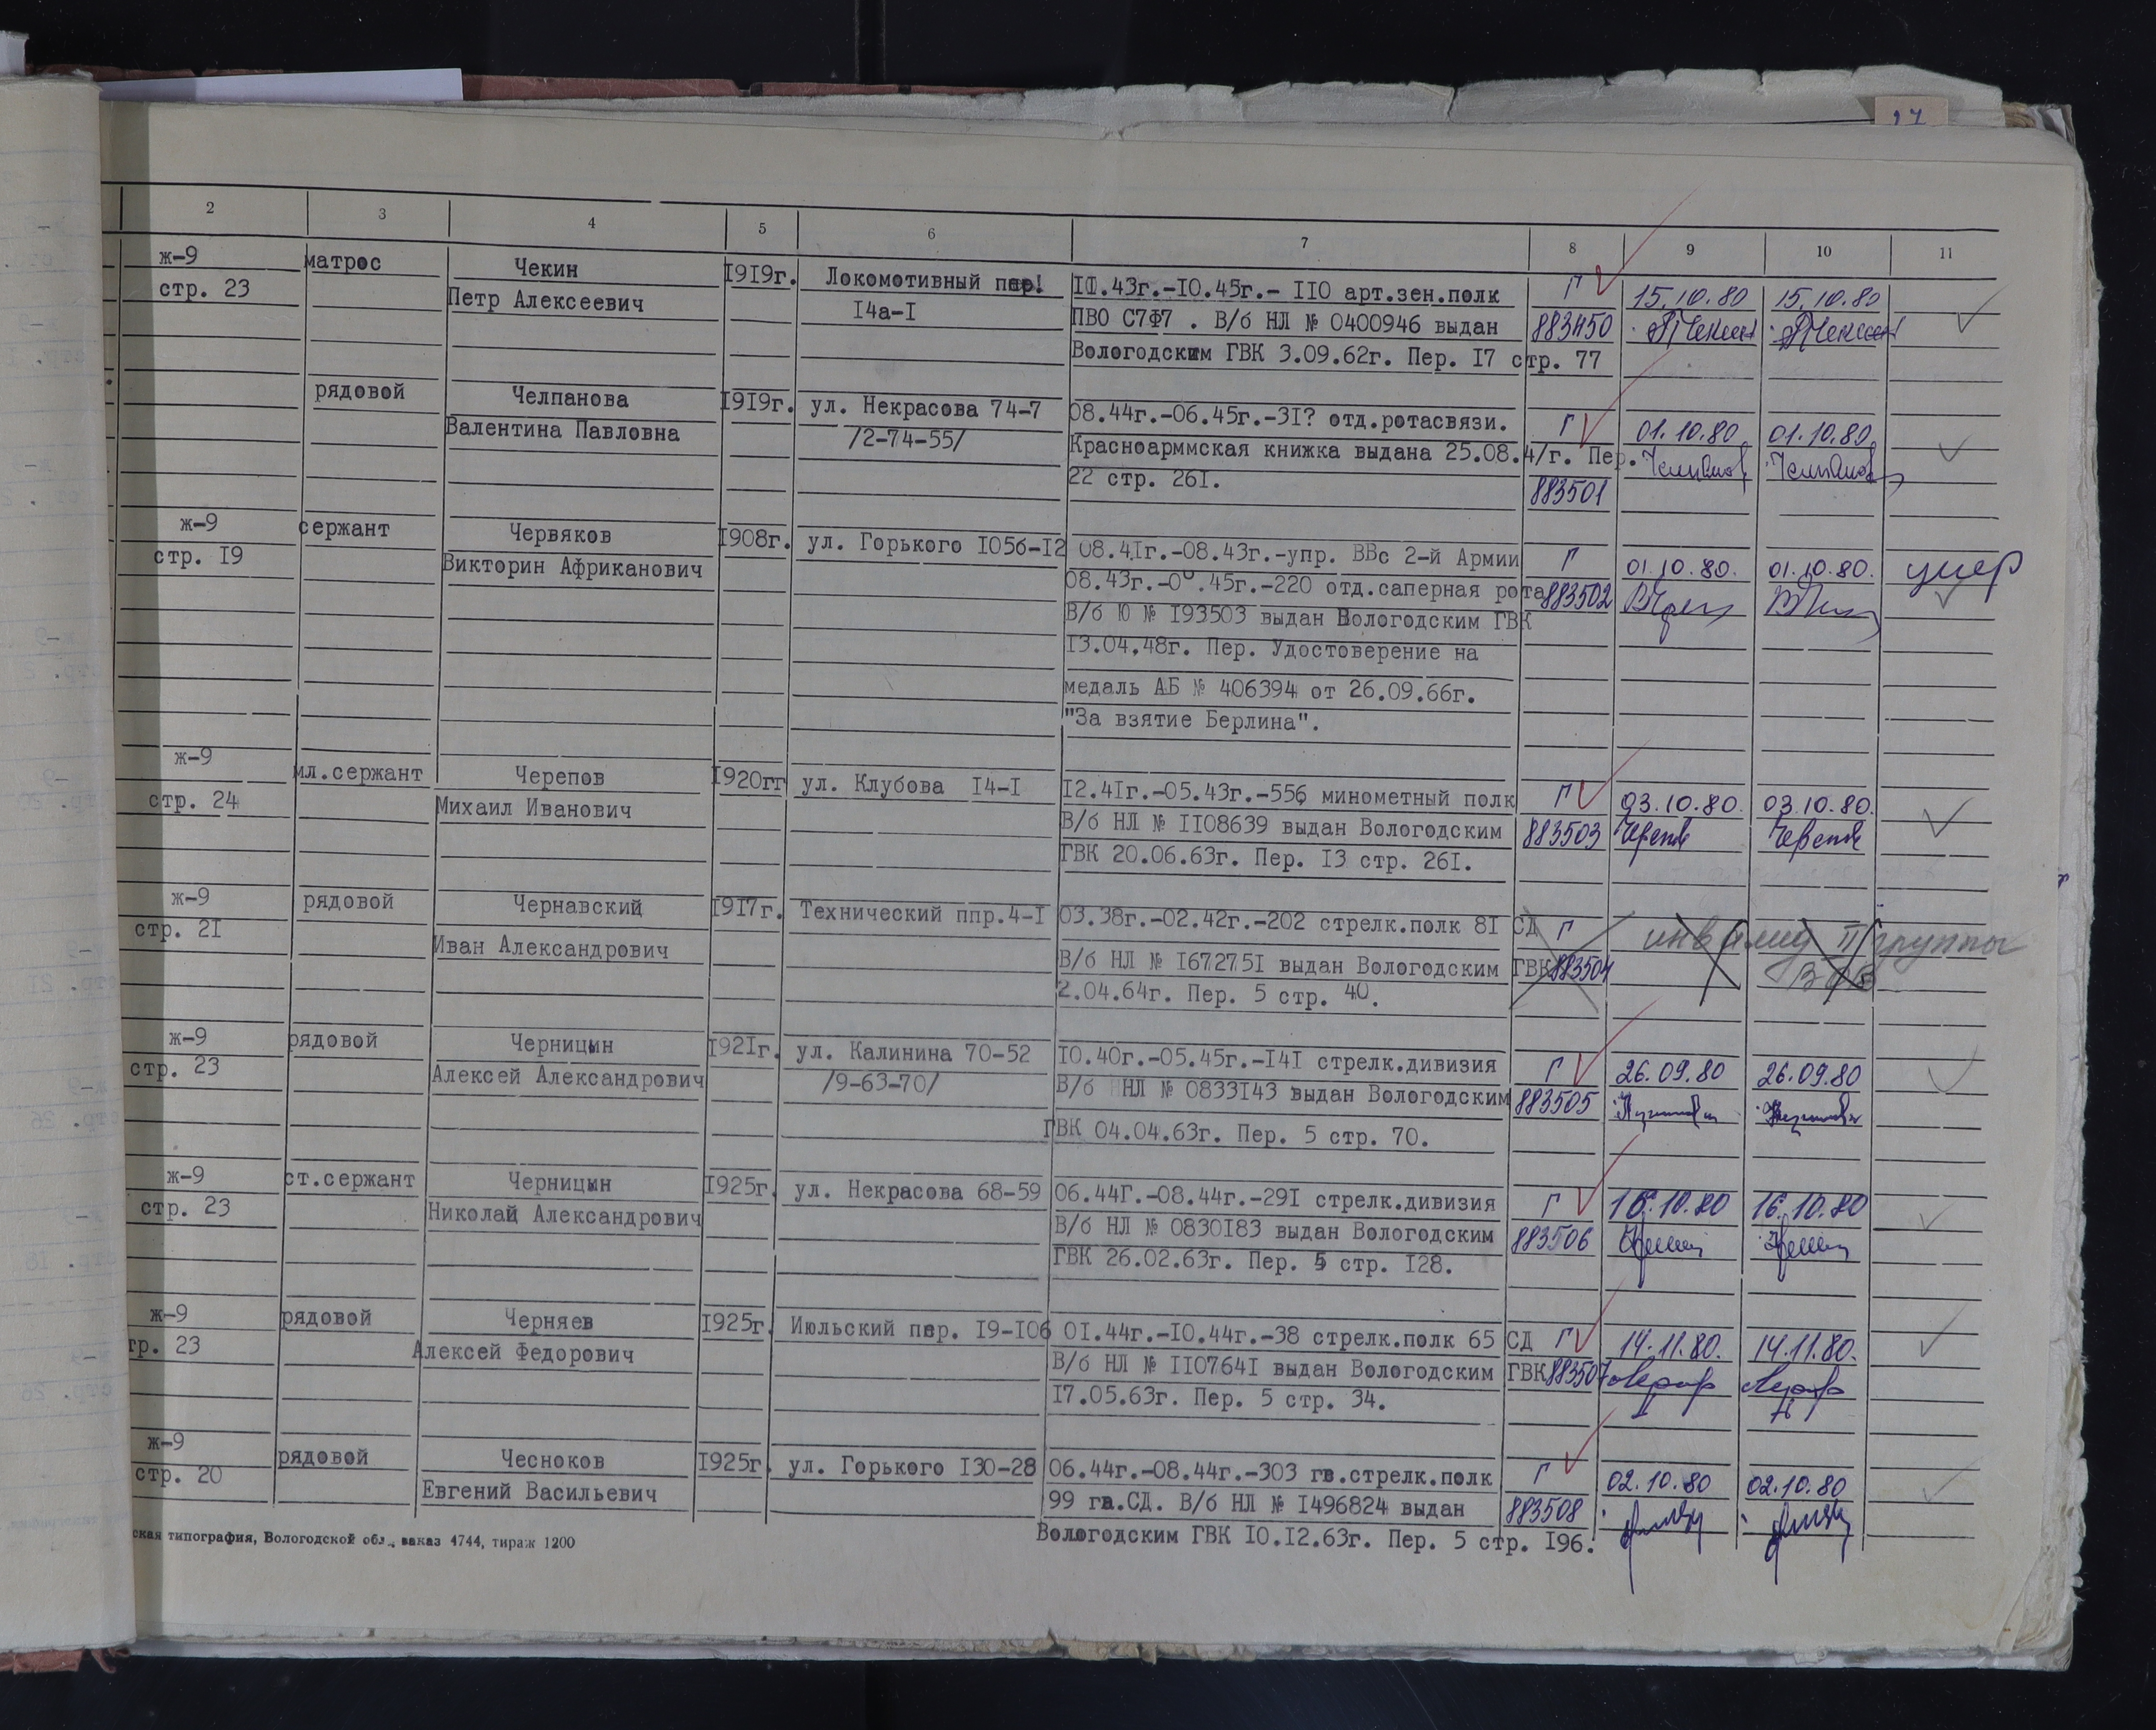 2 3 4 5 6 7 8 9 10 11
ж-9 матрос Чекин 1919г. Локомотивный пер. 10.43г.-10.45г.- 110 арт.зен.полк Г 15.10.80 15.10.80
стр. 23 Петр Алексеевич 14а-1 ПВО С7Ф7 . В/б НЛ № 0400946 выдан 883450
Вологодским ГВК 3.09.62г. Пер. 17 стр. 77
рядовой Челпанова 1919г. ул. Некрасова 74-7 08.44г.-06.45г.-31? отд.ротасвязи. Г 01.10.80 01.10.80
Валентина Павловна /2-74-55/ Красноарммская книжка выдана 25.08.4/г. Пер.
22 стр. 261. 883501
ж-9 сержант Червяков 1908г. ул. Горького 105б-12 08.41г.-08.43г.-упр. ВВс 2-й Армии Г 01.10.80. 01.10.80. умер
стр. 19 Викторин Африканович 08.43г.-0 .45г.-220 отд.саперная рота 883502
В/б Ю № 193503 выдан Вологодским ГВК
13.04.48г. Пер. Удостоверение на
медаль АБ № 406394 от 26.09.66г.
"За взятие Берлина".
ж-9 мл.сержант Черепов 1920гг ул. Клубова 14-1 12.41г.-05.43г.-556 минометный полк Г 03.10.80. 03.10.80.
стр. 24 Михаил Иванович В/б НЛ № 1108639 выдан Вологодским 883503
ГВК 20.06.63г. Пер. 13 стр. 261.
ж-9 рядовой Чернавский 1917г. Технический ппр.4-1 03.38г.-02.42г.-202 стрелк.полк 81 СД Г инвалид II группы
стр. 21 Иван Александрович В/б НЛ № 1672751 выдан Вологодским ГВК 883504 ВОВ
2.04.64г. Пер. 5 стр. 40.
ж-9 рядовой Черницын 1921г. ул. Калинина 70-52 10.40г.-05.45г.-141 стрелк.дивизия Г 26.09.80 26.09.80
стр. 23 Алексей Александрович /9-63-70/ В/б НЛ № 0833143 выдан Вологодским 883505
ГВК 04.04.63г. Пер. 5 стр. 70.
ж-9 ст.сержант Черницын 1925г. ул. Некрасова 68-59 06.44Г.-08.44г.-291 стрелк.дивизия Г 16.10.80 16.10.80
стр. 23 Николай Александрович В/б НЛ № 0830183 выдан Вологодским 883506
ГВК 26.02.63г. Пер. 5 стр. 128.
ж-9 рядовой Черняев 1925г. Июльский пер. 19-106 01.44г.-10.44г.-38 стрелк.полк 65 СД Г 14.11.80. 14.11.80.
тр. 23 Алексей Федорович В/б НЛ № 1107641 выдан Вологодским ГВК 883507
17.05.63г. Пер. 5 стр. 34.
ж-9 рядовой Чесноков 1925г. ул. Горького 130-28 06.44г.-08.44г.-303 гв.стрелк.полк Г 02.10.80 02.10.80
стр. 20 Евгений Васильевич 99 гв.СД. В/б НЛ № 1496824 выдан 883508
Вологодским ГВК 10.12.63г. Пер. 5 стр. 196.
ская типография, Вологодской обл., заказ 4744, тираж 1200